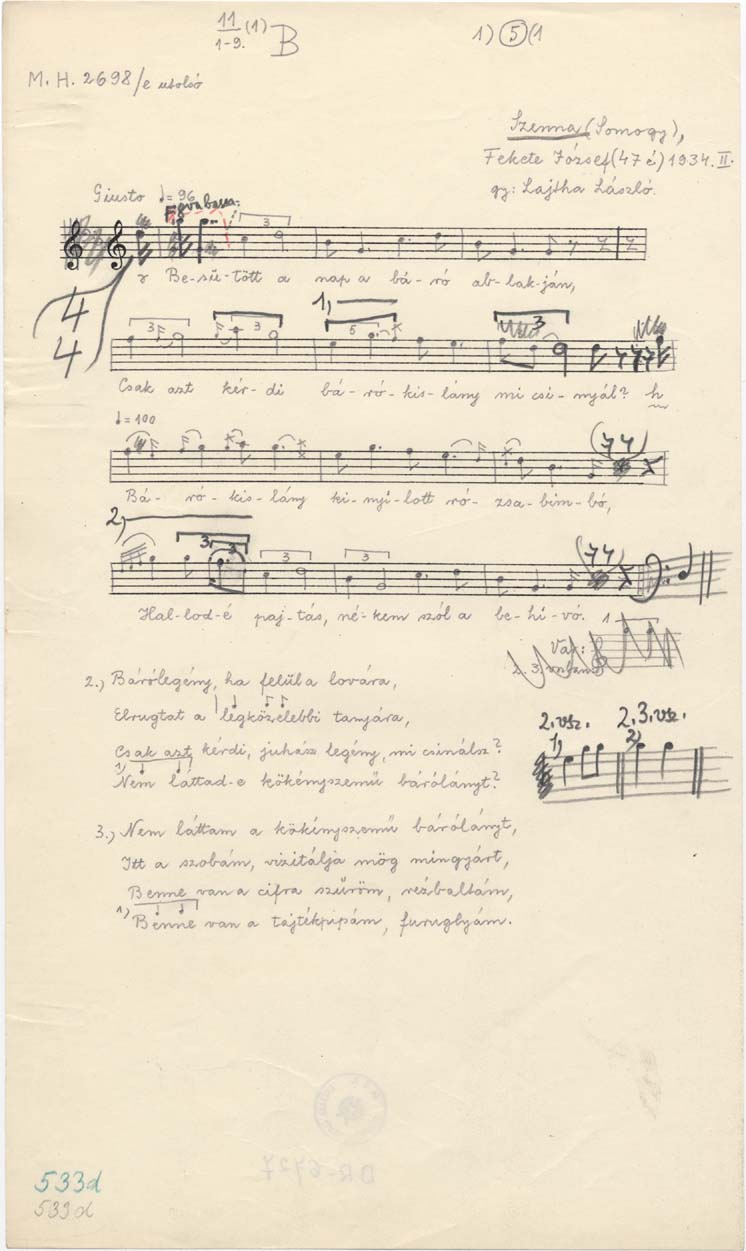 11 (1) B
1-9.
1) 5 (1
M. H. 2698/e utolsó
Szenna (Somogy),
Fekete József (47 é) 1934. II.
gy: Lajtha László.
Giusto ♩= 96
8va bassa:
3
Be-sü-tött a nap a bá-ró ab-lak-ján,
4
4
1,
3 3 5 3
Csak azt kér-di bá-ró-kis-lány mi csi-nyál? h
♩= 100
Bá-ró-kis-lány ki-nyi-lott ró-zsa-bim-bó,
2,
3 3 3 3
Hal-lod-é paj-tás, né-kem szól a be-hi-vó.
Var:
2.) Bárólegény, ha felül a lovára,
Elrugtat a legközelebbi tanyára,
Csak azt kérdi, juhász legény, mi csinálsz?
1) Nem láttad-e kökényszemű bárólányt?
2. vsz. 2.3. vsz.
1) 2)
3.) Nem láttam a kökényszemű bárólányt,
Itt a szobám, vizitálja mög mingyárt,
Benne van a cifra szűröm, rézbaltám,
1) Benne van a tajtékpipám, furuglyám.
DR-6727
533d
533d